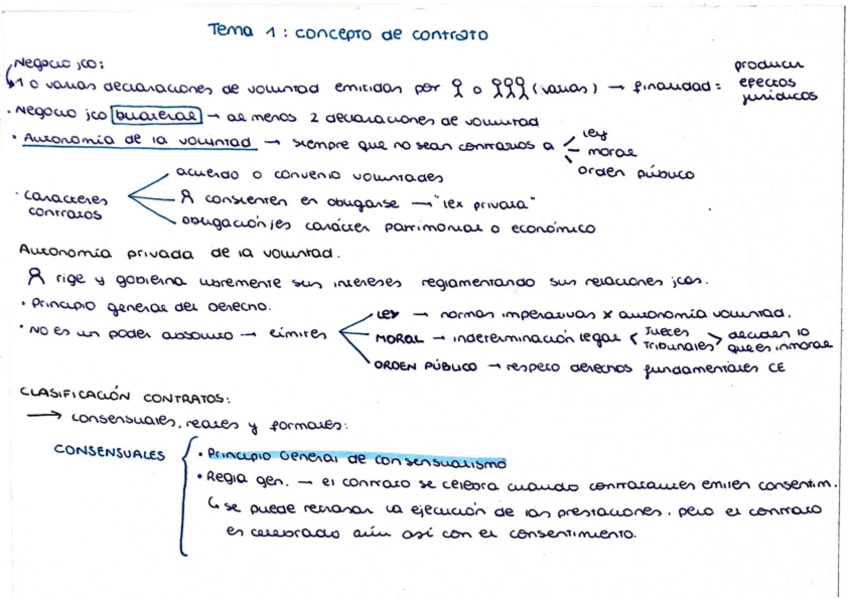 Tema 1: concepto de contrato
Negocio jco:
1 o varias declaraciones de voluntad emitidas por o (varias) → finalidad = producir efectos jurídicos
· Negocio jco bilateral → al menos 2 declaraciones de voluntad
· Autonomía de la voluntad → siempre que no sean contrarios a
ley
moral
orden público
· Caracteres contratos
acuerdo o convenio voluntades
consienten en obligarse → "lex privata"
obligación/es carácter patrimonial o económico
Autonomía privada de la voluntad.
rige y gobierna libremente sus intereses reglamentando sus relaciones jcas.
· Principio general del derecho.
· NO es un poder absoluto → límites
LEY → normas imperativas x autonomía voluntad.
MORAL → indeterminación legal < Jueces Tribunales > deciden lo que es inmoral
ORDEN PÚBLICO → respeto derechos fundamentales CE
CLASIFICACIÓN CONTRATOS:
→ consensuales, reales y formales:
CONSENSUALES
· Principio General de consensualismo
· Regla gen. → el contrato se celebra cuando contratantes emiten consentim.
↳ se puede retrasar la ejecución de las prestaciones, pero el contrato
es celebrado aún así con el consentimiento.